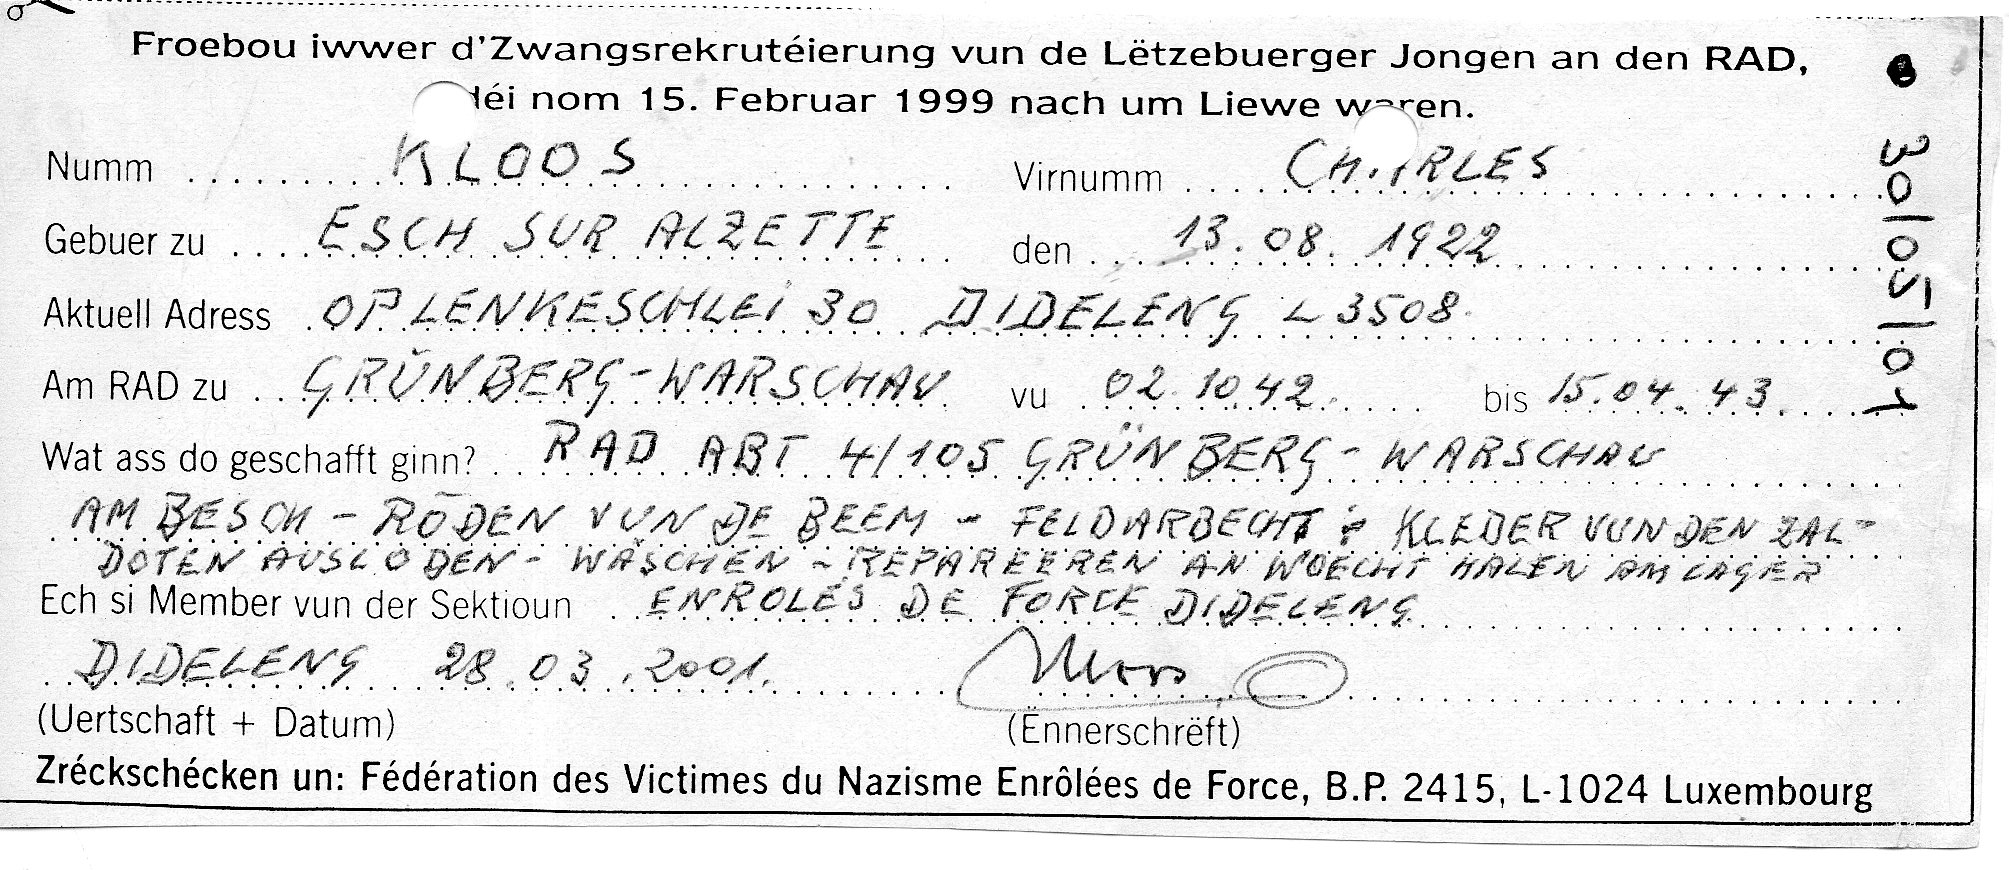 Froebou iwwer d'Zwangsrekrutéierung vun de Lëtzebuerger Jongen an den RAD,
déi nom 15. Februar 1999 nach um Liewe waren.
Numm KLOOS Virnumm CHARLES
Gebuer zu ESCH SUR ALZETTE den 13.08.1922
Aktuell Adress OP LENKESCHLEI 30 DIDELENG L 3508
Am RAD zu GRÜNBERG-WARSCHAU vu 02.10.42. bis 15.04.43.
Wat ass do geschafft ginn? RAD ABT 4/105 GRÜNBERG-WARSCHAU
AM BESCH - RÖDEN VUN DE BEEM - FELDARBECHT : KLEDER VUN DEN ZAL-
DOTEN AUSLODEN - WÄSCHEN - REPAREEREN AN WOECHT HALEN AM LAGER
Ech si Member vun der Sektioun ENROLÉS DE FORCE DIDELENG
DIDELENG 28.03.2001.
(Uertschaft + Datum) (Ënnerschrëft)
Zréckschécken un: Fédération des Victimes du Nazisme Enrôlées de Force, B.P. 2415, L-1024 Luxembourg
30/05/01